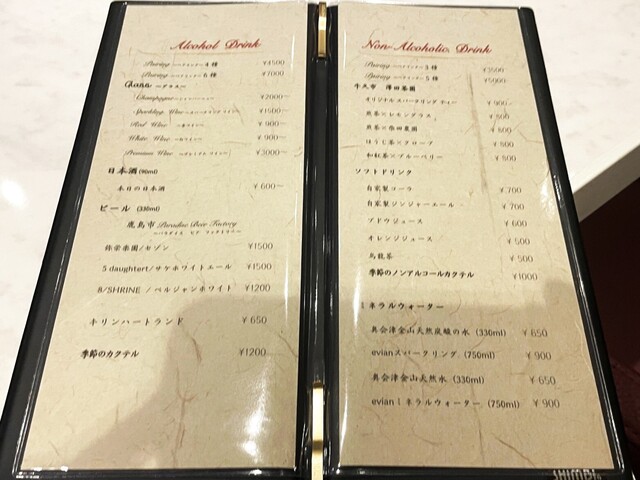 Alcohol Drink
Pairing 4種 ¥4500
Pairing 6種 ¥7000
Glass ーグラスー
Champagne ¥2000～
Sparkling Wine ースパークリングワインー ¥1500～
Red Wine ー赤ワインー ¥900～
White Wine ー白ワインー ¥900～
Premium Wine ープレミアムワインー ¥3000～
日本酒 (90ml)
本日の日本酒 ¥600～
ビール (330ml)
鹿島市 Paradise Beer Factory
ーパラダイス ビア ファクトリーー
弥栄楽園/セゾン ¥1500
5 daughtert/サケホワイトエール ¥1500
8/SHRINE / ベルジャンホワイト ¥1200
キリンハートランド ¥650
季節のカクテル ¥1200
Non-Alcoholic Drink
Pairing 3種 ¥3500
Pairing 5種 ¥5000
牛久市 澤田茶園
オリジナルスパークリングティー ¥900
煎茶×レモングラス ¥800
煎茶× ¥800
ほうじ茶×クローブ ¥800
和紅茶×ブルーベリー ¥800
ソフトドリンク
自家製コーラ ¥700
自家製ジンジャーエール ¥700
ブドウジュース ¥600
オレンジジュース ¥500
烏龍茶 ¥500
季節のノンアルコールカクテル ¥1000
ミネラルウォーター
奥会津金山天然炭酸の水 (330ml) ¥650
evianスパークリング (750ml) ¥900
奥会津金山天然水 (330ml) ¥650
evianミネラルウォーター (750ml) ¥900
SHIMBI